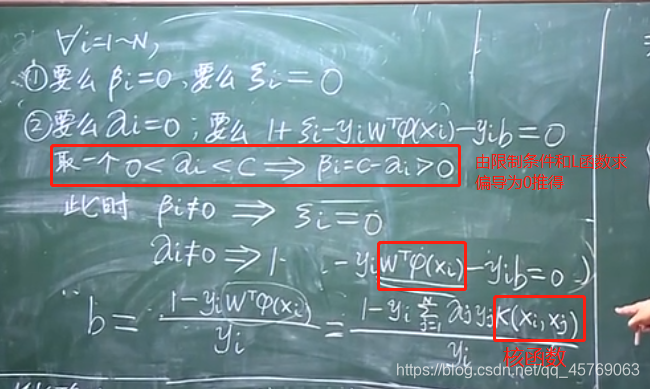 ∀i=1~N,
①要么 βi=0,要么 ξi=0
②要么 αi=0;要么 1+ξi-yiWᵀφ(xi)-yib=0
取一个 0<αi<C ⟹ βi=C-αi>0
由限制条件和
偏导为0推得
此时 βi≠0 ⟹ ξi=0
αi≠0 ⟹ 1-yiWᵀφ(xi)-yib=0
b = (1-yiWᵀφ(xi))/yi = (1-yi Σ_{j=1}^{N} αjyjK(xi,xj))/yi
核函数
https://blog.csdn.net/qq_45769063